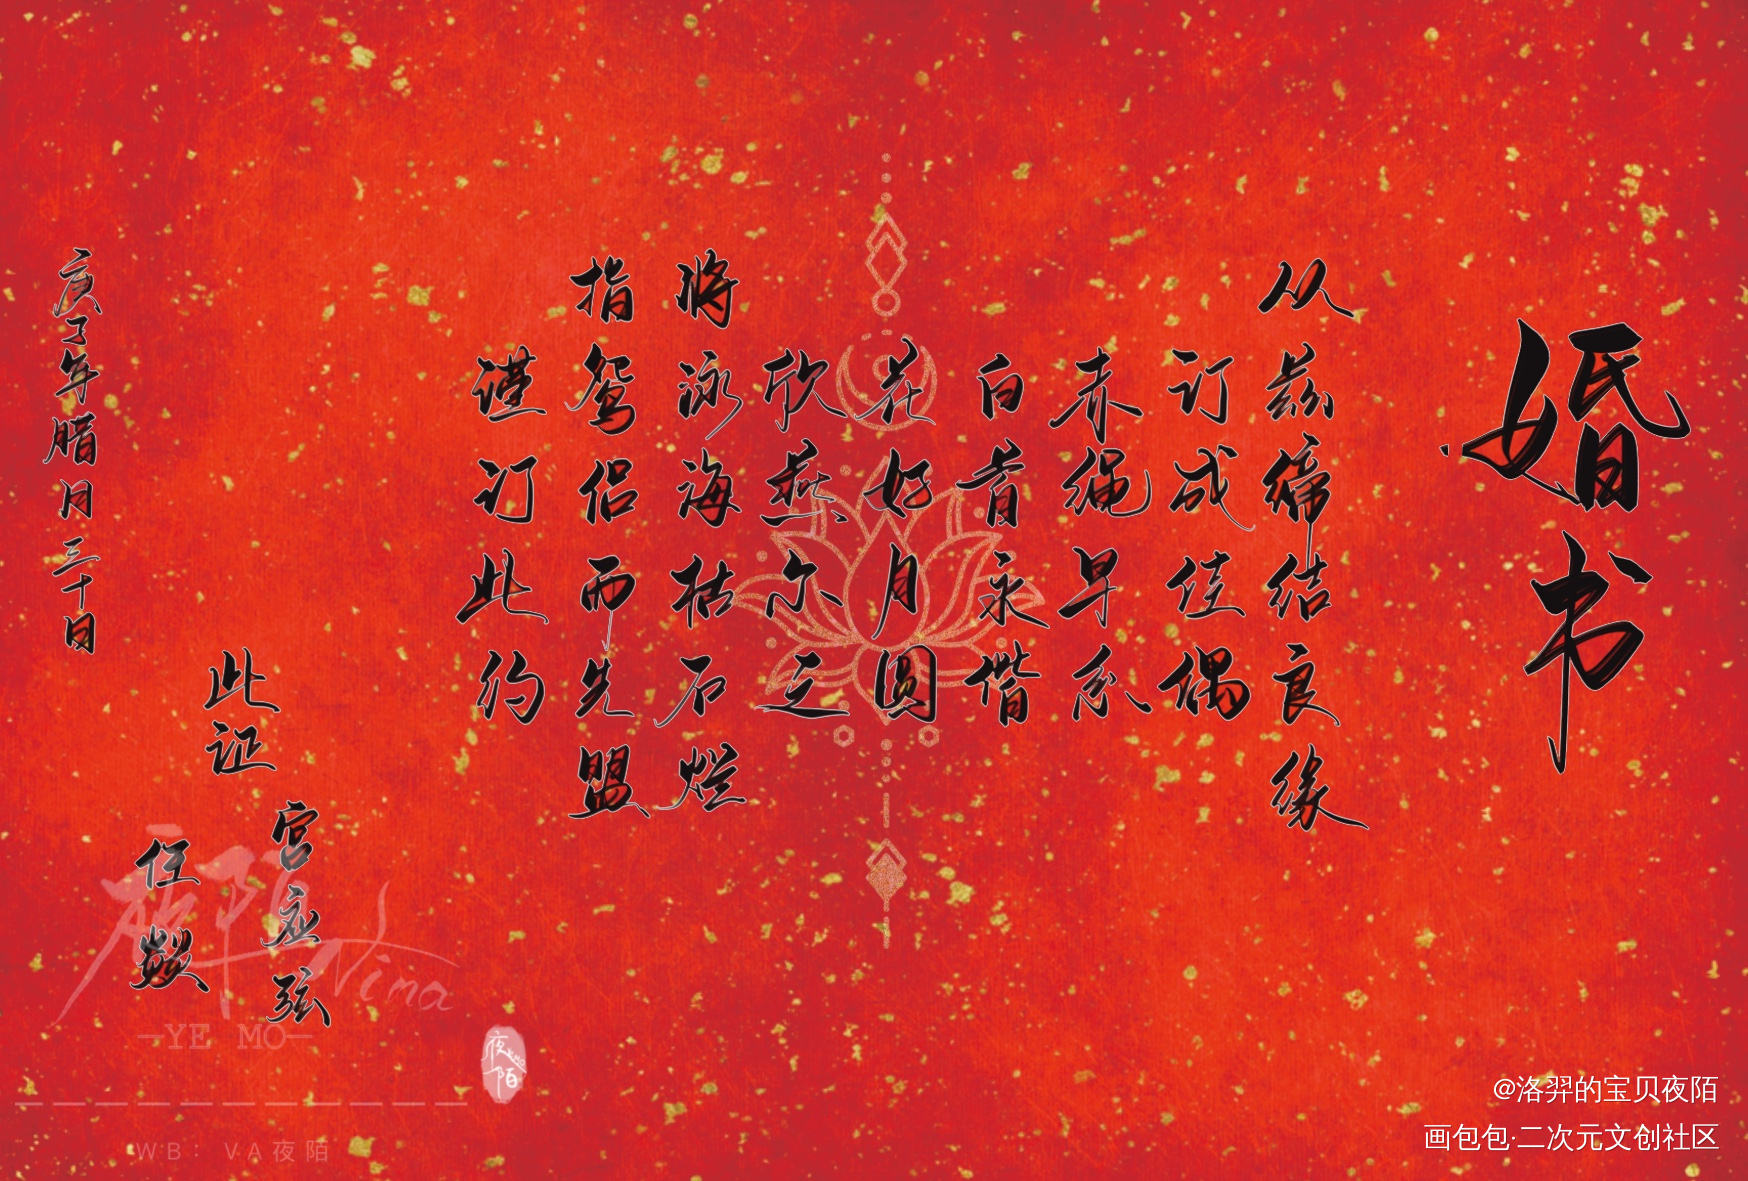 婚书
从兹缔结良缘
订成佳偶
赤绳早系
白首永偕
花好月圆
欣燕尔之
将泳海枯石烂
指鸳侣而先盟
谨订此约
此证
宫应弦
任燚
庚子年腊月三十日
夜陌
Nina
—YE MO—
夜陌
WB：VA夜陌
@洛羿的宝贝夜陌
画包包·二次元文创社区